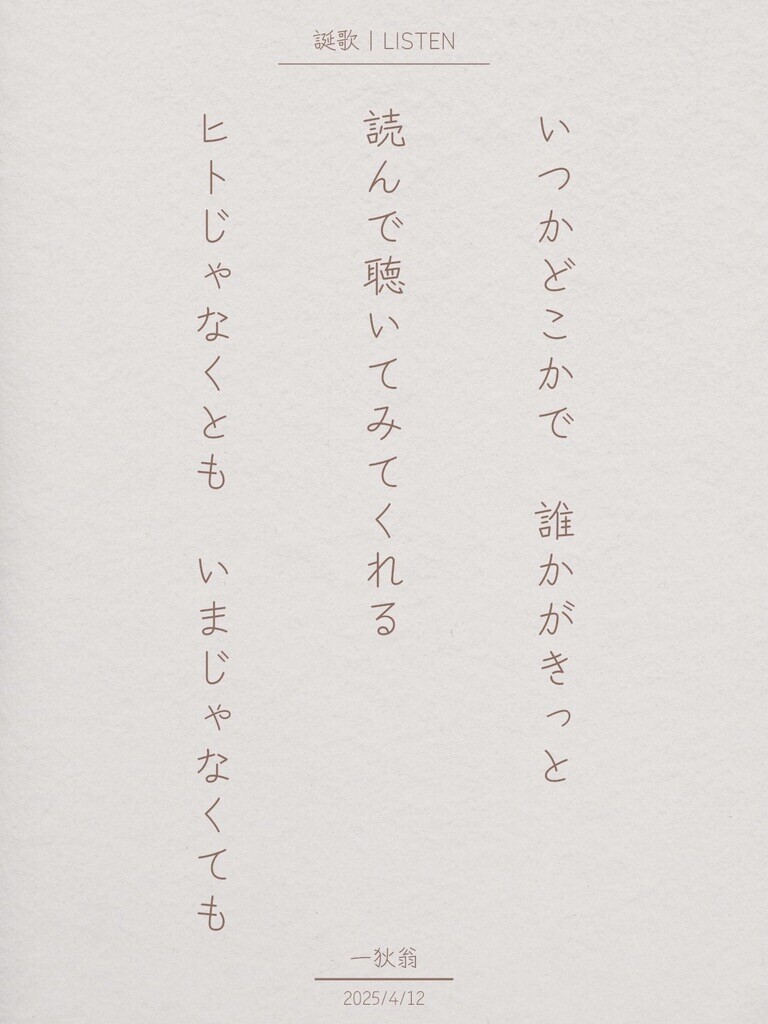 誕歌｜LISTEN
いつかどこかで　誰かがきっと
読んで聴いてみてくれる
ヒトじゃなくとも　いまじゃなくても
一狄翁
2025/4/12